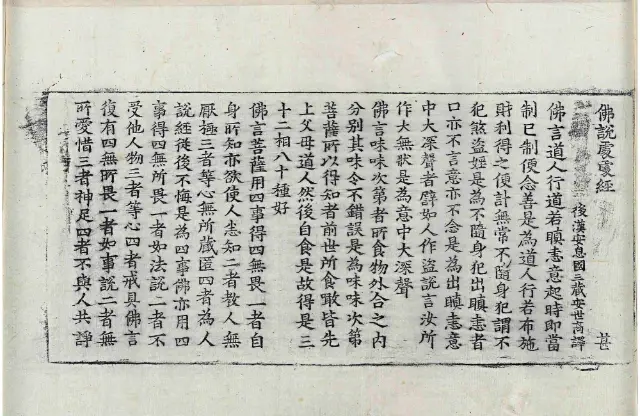 佛說處處經 甚
後漢安息國三藏安世高譯
佛言道人行道若瞋恚意起時即當
制已制便念善是為道人行若布施
財利得之便計無常不隨身犯謂不
犯煞盜婬是為不隨身犯出瞋恚者
口亦不言意亦不念是為出瞋恚意
中大深聲者譬如人作盜說言汝所
作大無狀是為意中大深聲
佛言味味次第者所食物外合之內
分别其味令不錯誤是為味味次第
菩薩所以得知者前世所食噉皆先
上父母道人然後自食是故得是三
十二相八十種好
佛言菩薩用四事得四無畏一者自
身所知亦欲使人悉知二者教人無
厭極三者等心無所藏匿四者為人
說經從後不悔是為四事佛亦用四
事得四無所畏一者如法說二者不
受他人物三者等心四者戒具佛言
復有四無所畏一者如事說二者無
所愛惜三者神足四者不與人共諍